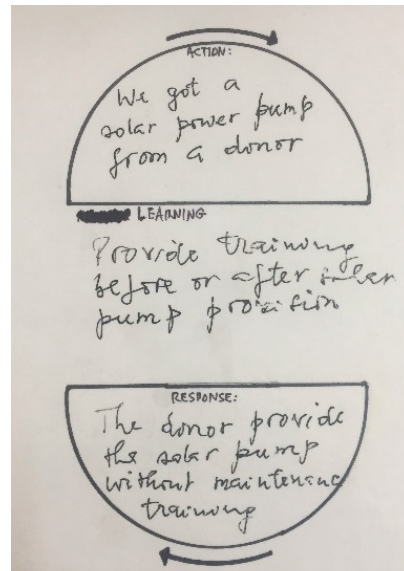 ACTION:
We got a
solar power pump
from a donor
LEARNING
Provide training
before or after
pump provision
RESPONSE:
The donor provide
the solar pump
without maintenance
training